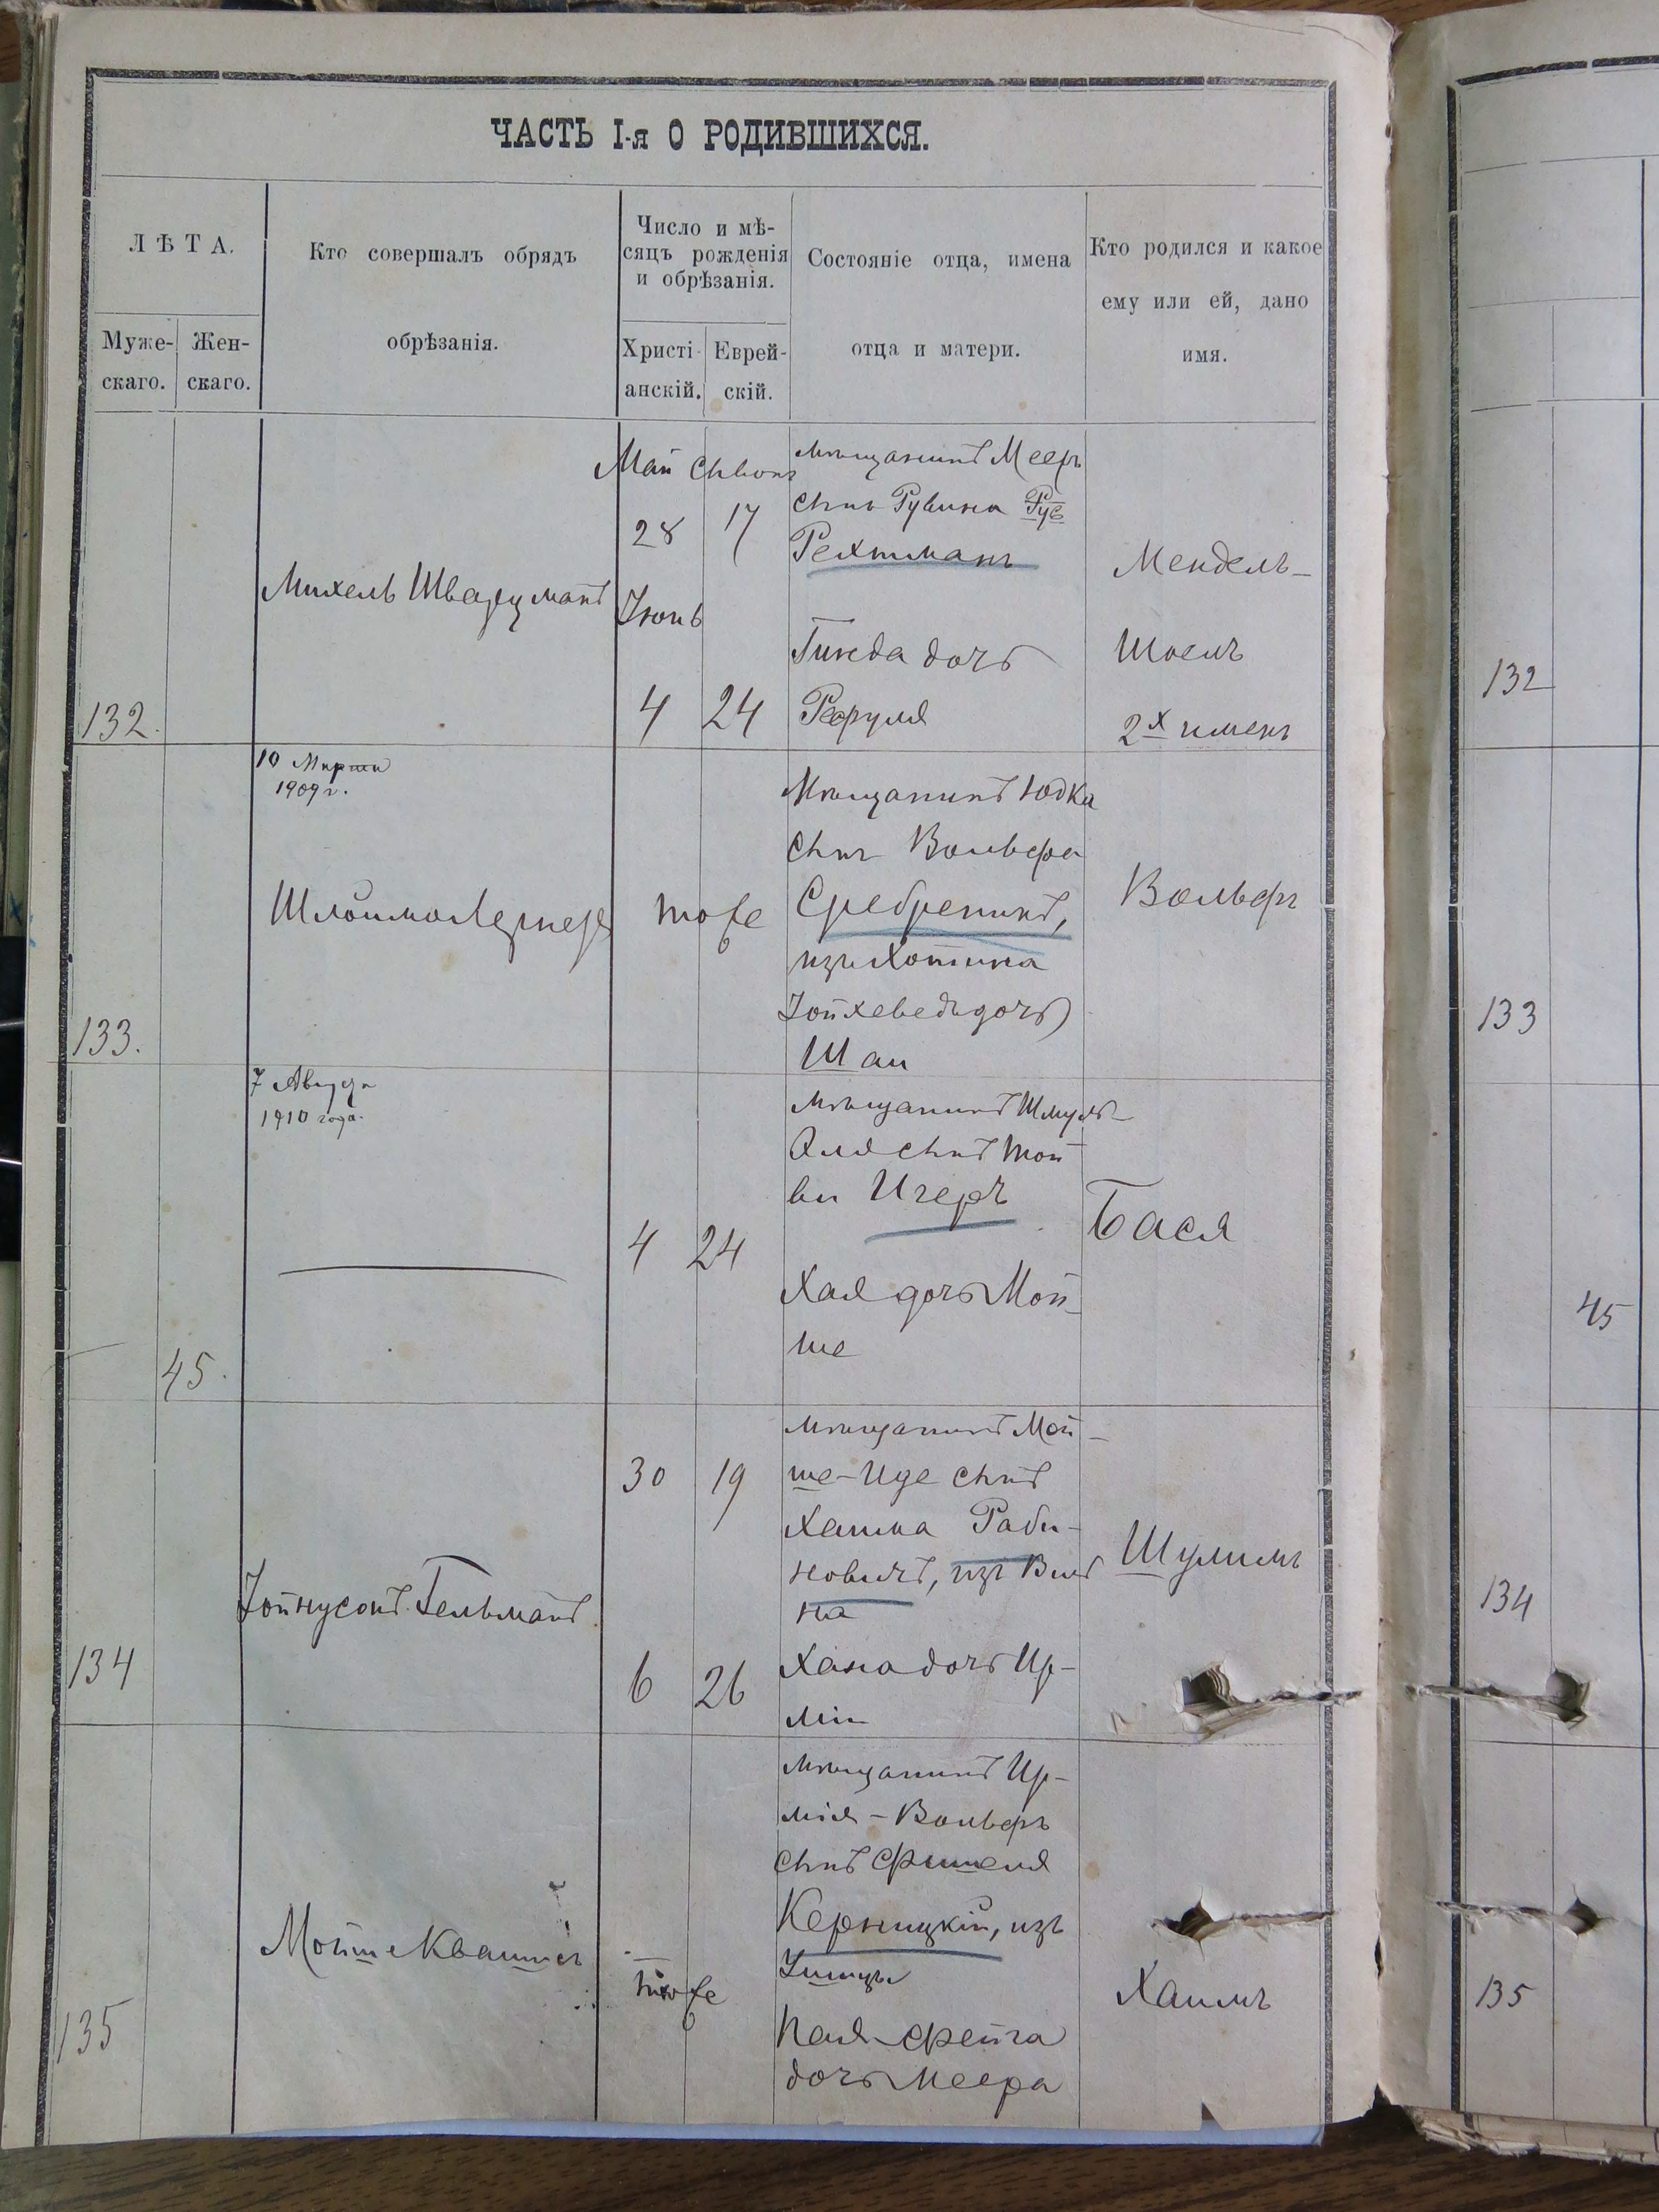 ЧАСТЬ I-я О РОДИВШИХСЯ.
ЛѢТА.
Муже-
скаго.
Жен-
скаго.
Кто совершалъ обрядъ
обрѣзанія.
Число и мѣ-
сяцъ рожденія
и обрѣзанія.
Христі-
анскій.
Еврей-
скій.
Состояніе отца, имена
отца и матери.
Кто родился и какое
ему или ей, дано
имя.
132.
Михель Шварцманъ
Май Сивонъ
28 17
Іюнь
4 24
мѣщанинъ Мееръ
сынъ Рувина Рув
Рехтманъ
Гинда дочь
Рефуля
Мендель-
Шоелъ
2х именъ
132
133.
10 Марта
1909 г.
Шлойма Лернеръ
тоже
Мѣщанинъ Юдка
сынъ Вольфа
Сребреникъ,
изъ Хотина
Іойхеведъ дочь
Шаи
Вольфъ
133
45.
7 Августа
1910 года.
4 24
мѣщанинъ Шмуль-
Эля сынъ Той
ви Игеръ
Хая дочь Мой-
ше
Бася
45
134
Іойнусонъ Гельманъ
30 19
6 26
мѣщанинъ Мой-
ше-Иде сынъ
Хаима Раби-
новичъ, изъ
на
Хана дочь Ир-
міи
Шулимъ
134
135
Мойше Квашисъ
тоже
мѣщанинъ Ир-
мія-Вольфъ
сынъ Фишеля
Керницкій, изъ
Ушицы
Пая-Фейга
дочь Меера
Хаимъ
135